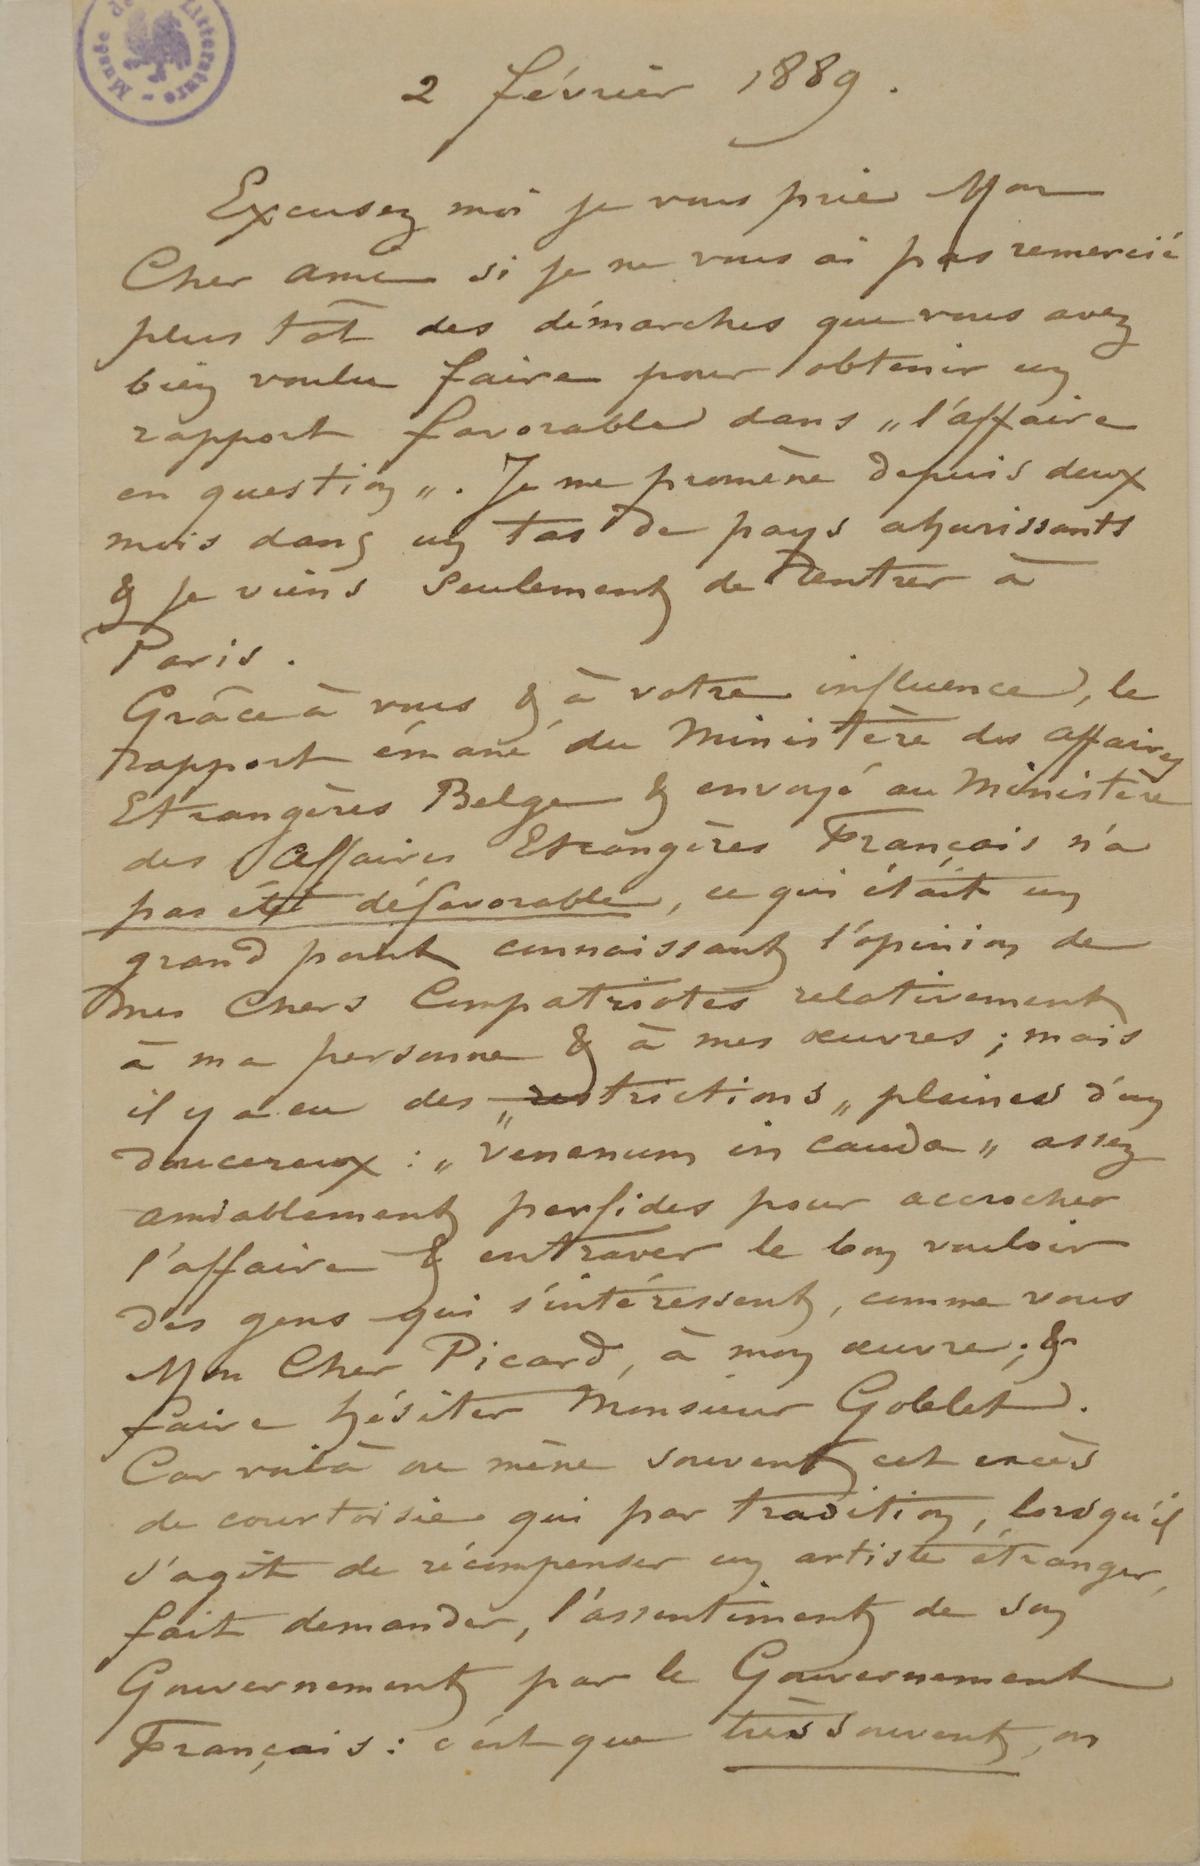 Musée de Littérature
2 février 1889.
Excusez moi je vous prie Mon
Cher ami si je ne vous ai pas remercié
plus tôt des démarches que vous avez
bien voulu faire pour obtenir un
rapport favorable dans „l'affaire
en question„. Je me promène depuis deux
mois dans un tas de pays ahurissants
& je viens seulement de rentrer à
Paris.
Grâce à vous & à votre influence, le
rapport émané du Ministère des Affaires
Etrangères Belge & envoyé au Ministère
des Affaires Etrangères Français n'a
pas été défavorable, ce qui était un
grand point connaissant l'opinion de
mes Chers Compatriotes relativement
à ma personne & à mes œuvres ; mais
il y a eu des „restrictions„ pleines d'un
doucereux : „venenum in cauda„ assez
amiablement perfides pour accrocher
l'affaire & entraver le bon vouloir
des gens qui s'intéressent, comme vous
Mon Cher Picard, à mon œuvre ; &
faire hésiter Monsieur Goblet.
Car voilà où mène souvent cet excès
de courtoisie qui par tradition, lorsqu'il
s'agit de récompenser un artiste étranger,
fait demander, l'assentiment de son
Gouvernement par le Gouvernement
Français : c'est que très souvent, on